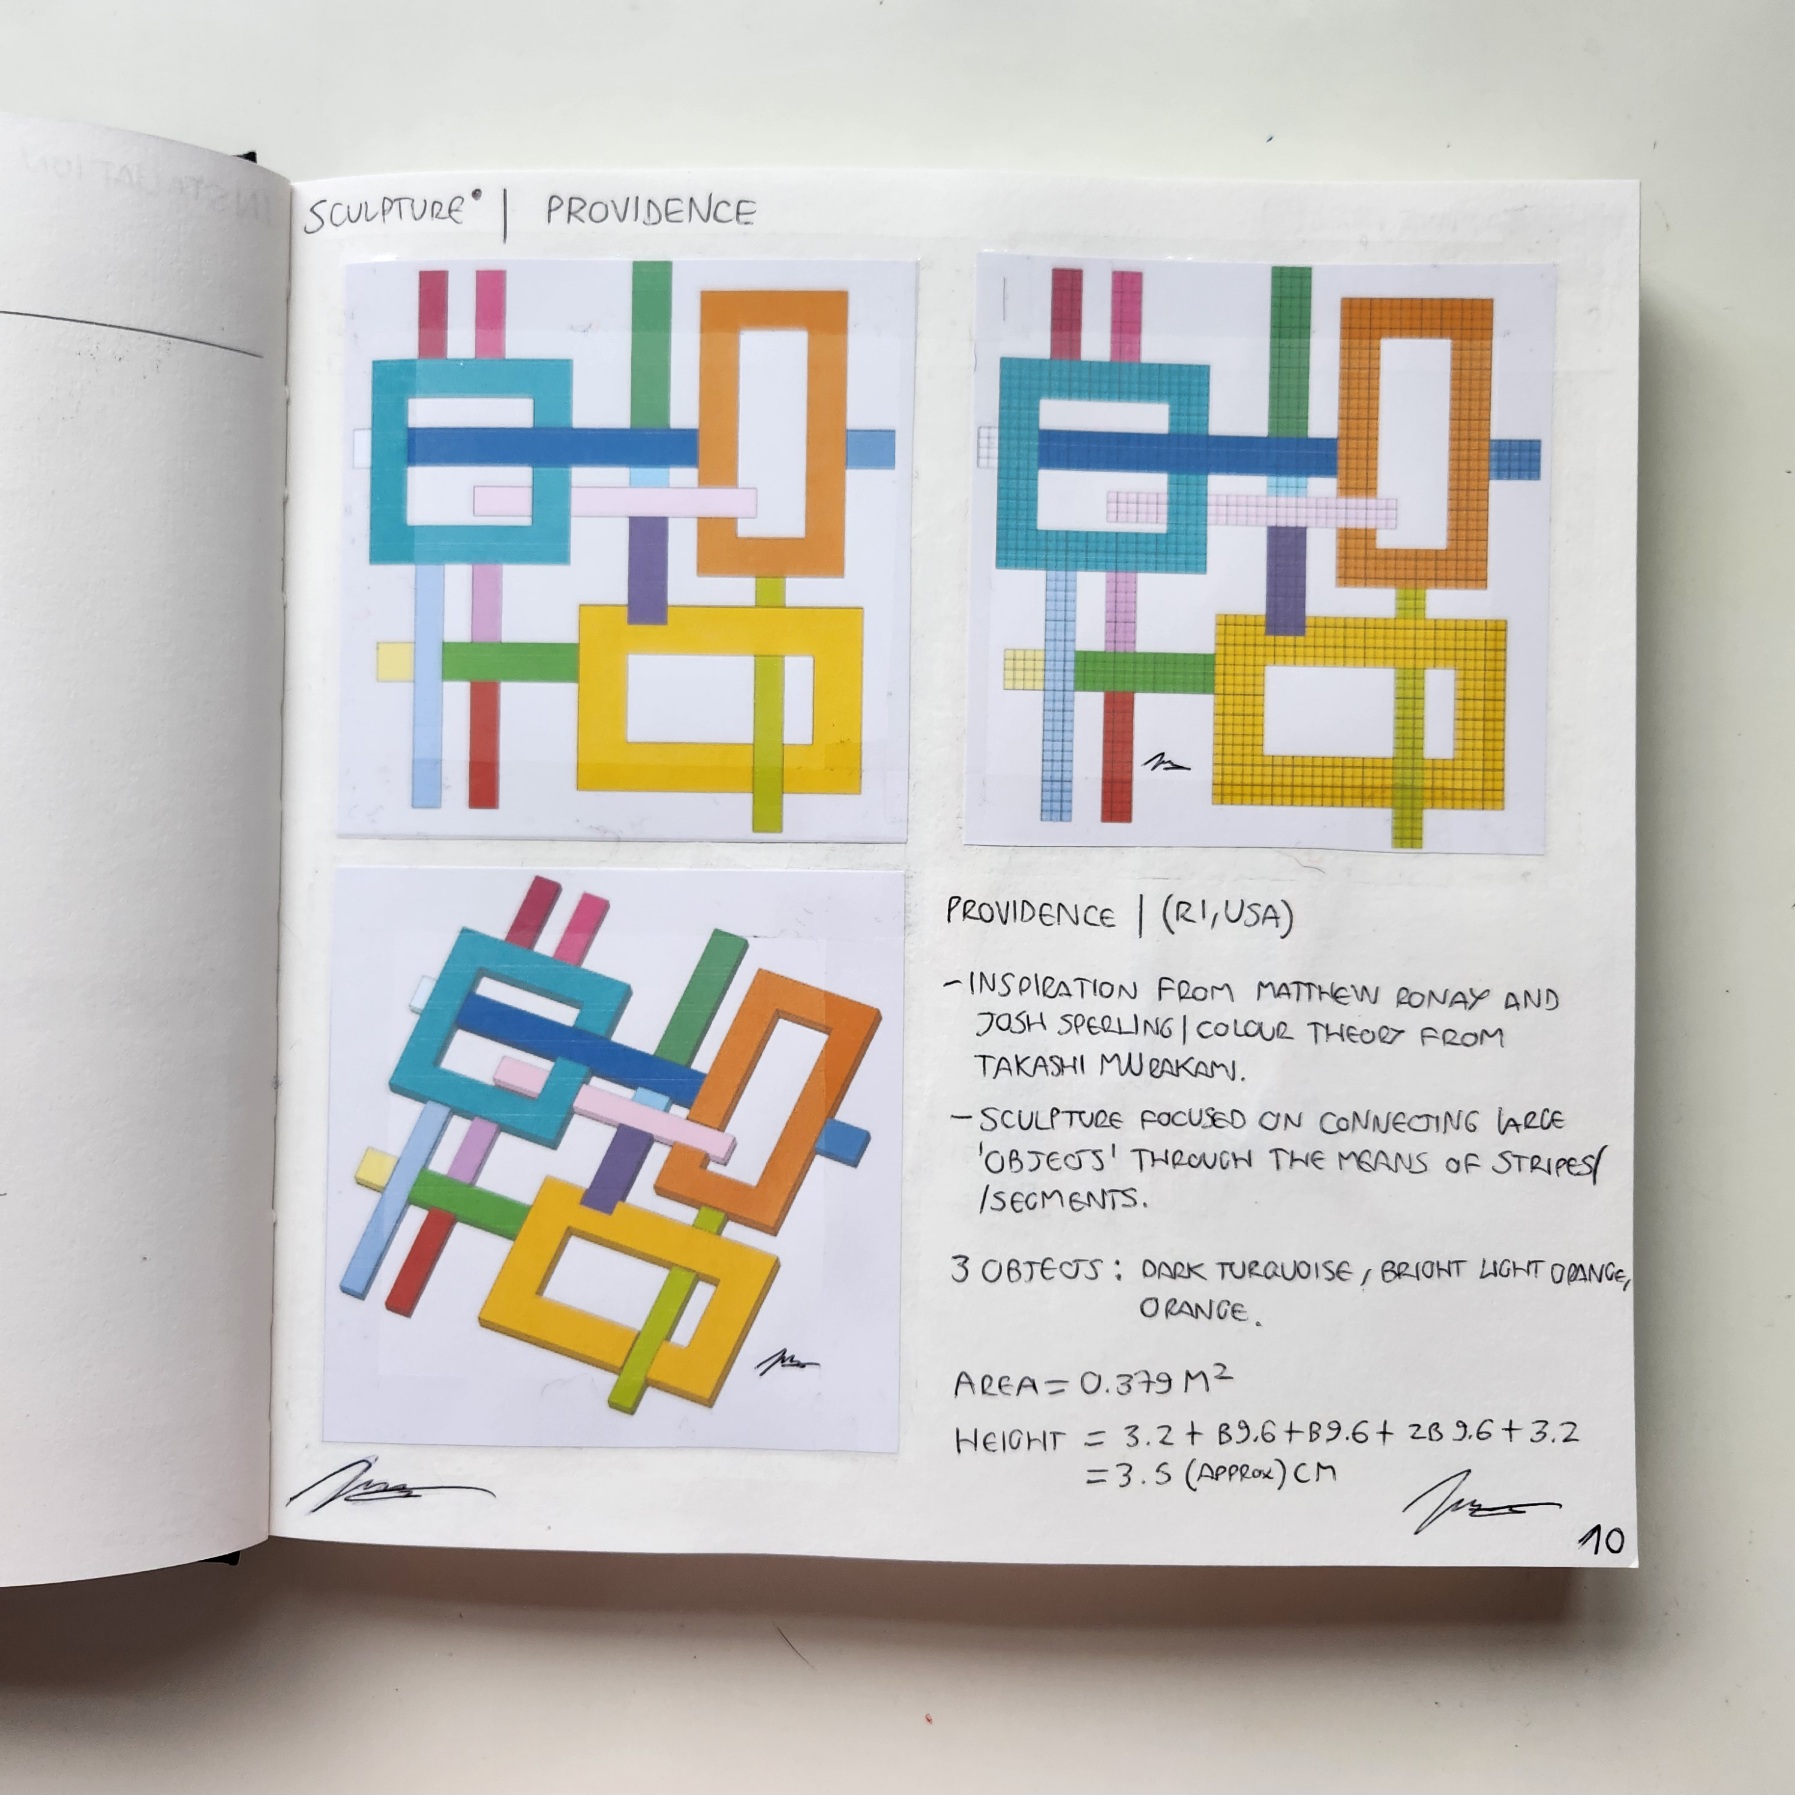 INSTALLATION
SCULPTURE | PROVIDENCE
PROVIDENCE | (RI, USA)
- INSPIRATION FROM MATTHEW RONAY AND
JOSH SPERLING | COLOUR THEORY FROM
TAKASHI MURAKAMI.
- SCULPTURE FOCUSED ON CONNECTING LARGE
'OBJECTS' THROUGH THE MEANS OF STRIPES/
/SEGMENTS.
3 OBJECTS: DARK TURQUOISE, BRIGHT LIGHT ORANGE,
ORANGE.
AREA = 0.379 M²
HEIGHT = 3.2 + B9.6 + B9.6 + 2B 9.6 + 3.2
= 3.5 (APPROX) CM
10